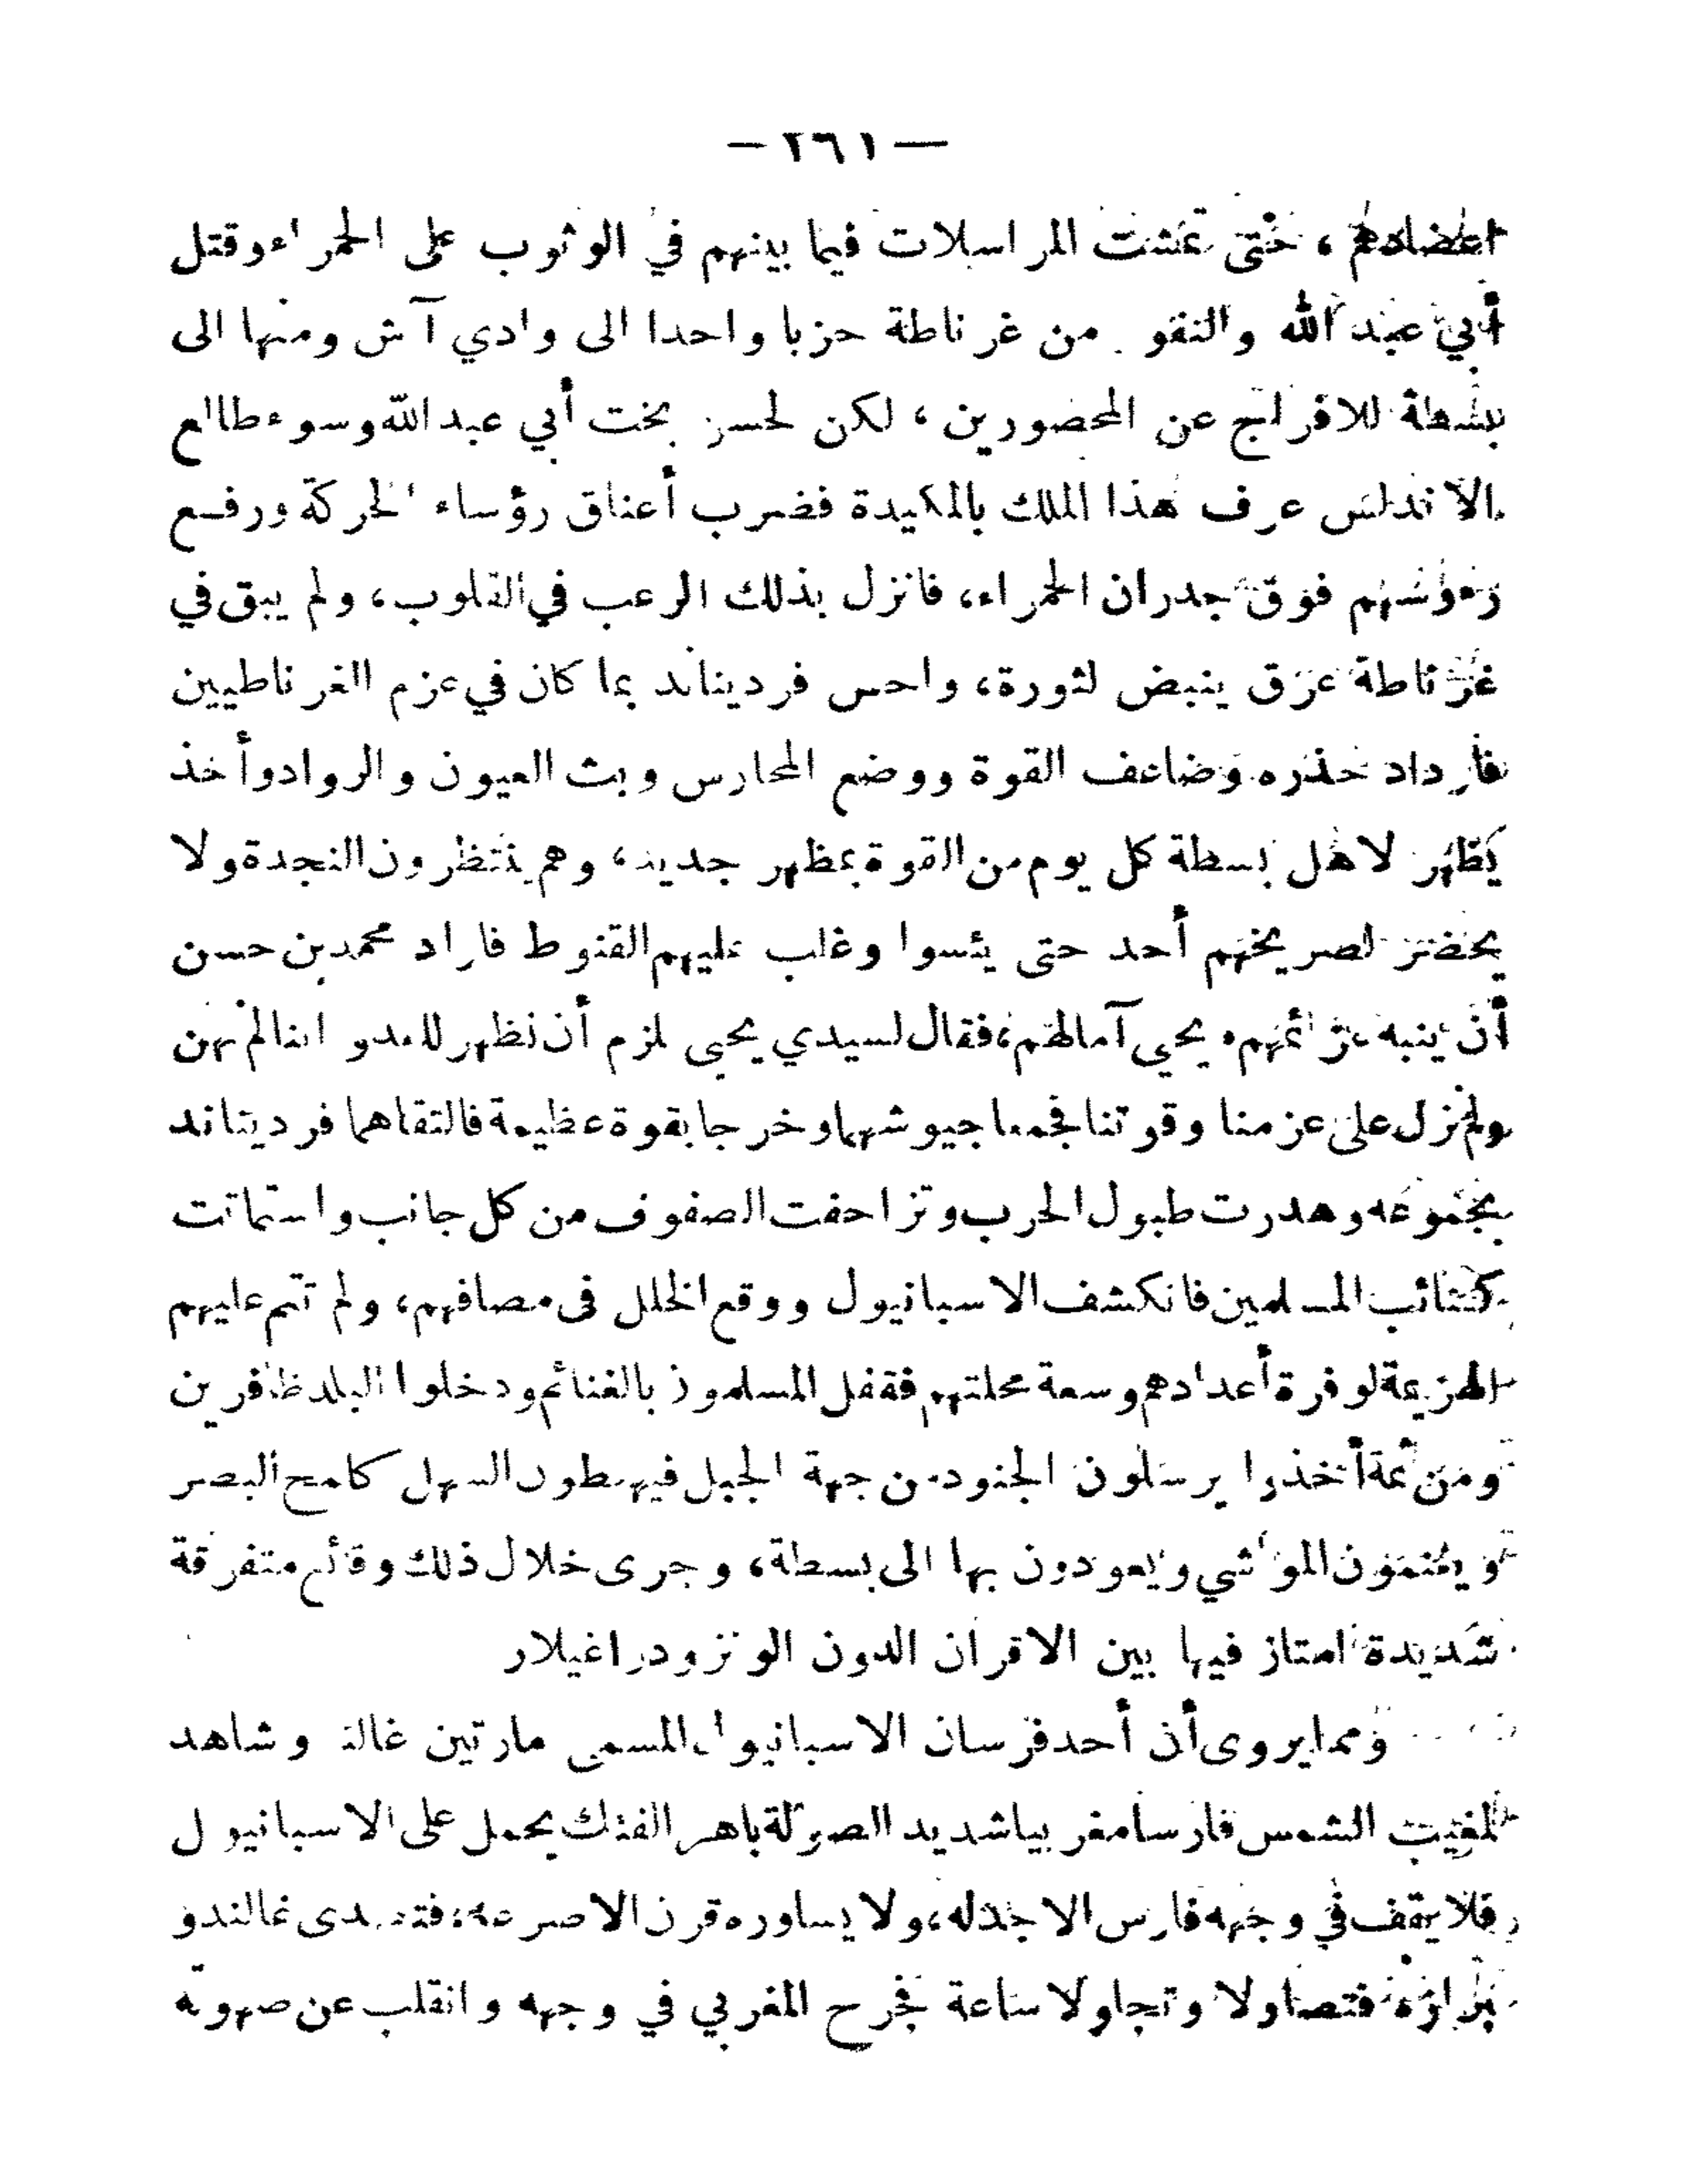 — ٢٦١ —
اعضادهم ، حتى تمشت المراسلات فيما بينهم في الوثوب على الحمراء وقتل
أبي عبد الله والنفو من غرناطة حزبا واحدا الى وادي آش ومنها الى
بسطة للافراج عن المحصورين ، لكن لحسن بخت أبي عبد الله وسوء طالع
الاندلس عرف هذا الملك بالمكيدة فضرب أعناق رؤساء الحركة ورفع
رءوسهم فوق جدران الحمراء، فانزل بذلك الرعب في القلوب، ولم يبق في
غرناطة عرق ينبض لثورة، واحس فرديناند بما كان في عزم الغرناطيين
فازداد حذره وضاعف القوة ووضع المحارس وبث العيون والرواد وأخذ
يظهر لاهل بسطة كل يوم من القوة بمظهر جديد، وهم ينتظرون النجدة ولا
يحضر لصريخهم أحد حتى يئسوا وغلب عليهم القنوط فاراد محمد بن حسن
أن ينبه عزائمهم ويحيي آمالهم، فقال لسيدي يحيى يلزم أن نظهر للعدو اننا لم نهن
ولم نزل على عزمنا وقوتنا فجمعا جيوشهما وخرجا بقوة عظيمة فالتقاهما فرديناند
بجموعه وهدرت طبول الحرب وتزاحفت الصفوف من كل جانب واستماتت
كتائب المسلمين فانكشف الاسبانيول ووقع الخلل في مصافهم، ولم تتم عليهم
الهزيمة لوفرة أعدادهم وسعة محلتهم فقفل المسلمون بالغنائم ودخلوا البلد ظافرين
ومن ثمة أخذوا يرسلون الجنود من جهة الجبل فيهبطون السهل كلمح البصر
ويغنمون المواشي ويعودون بها الى بسطة، وجرى خلال ذلك وقائع متفرقة
شديدة امتاز فيها بين الاقران الدون الونزو دراغيلار
ومما يروى أن أحد فرسان الاسبانيول المسمى مارتين غالند وشاهد
لمغيب الشمس فارسا مغربيا شديد الصولة باهر الفتك يحمل على الاسبانيول
فلا يقف في وجهه فارس الا جدله، ولا يساوره قرن الا صرعه، فتصدى غالندو
برازه فتصاولا وتجاولا ساعة فجرح المغربي في وجهه وانقلب عن صهوته